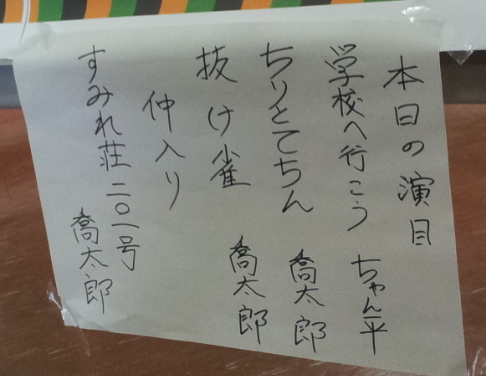 本日の演目
学校へ行こう ちゃん平
ちりとてちん 喬太郎
抜け雀 喬太郎
仲入り
すみれ荘二〇一号 喬太郎